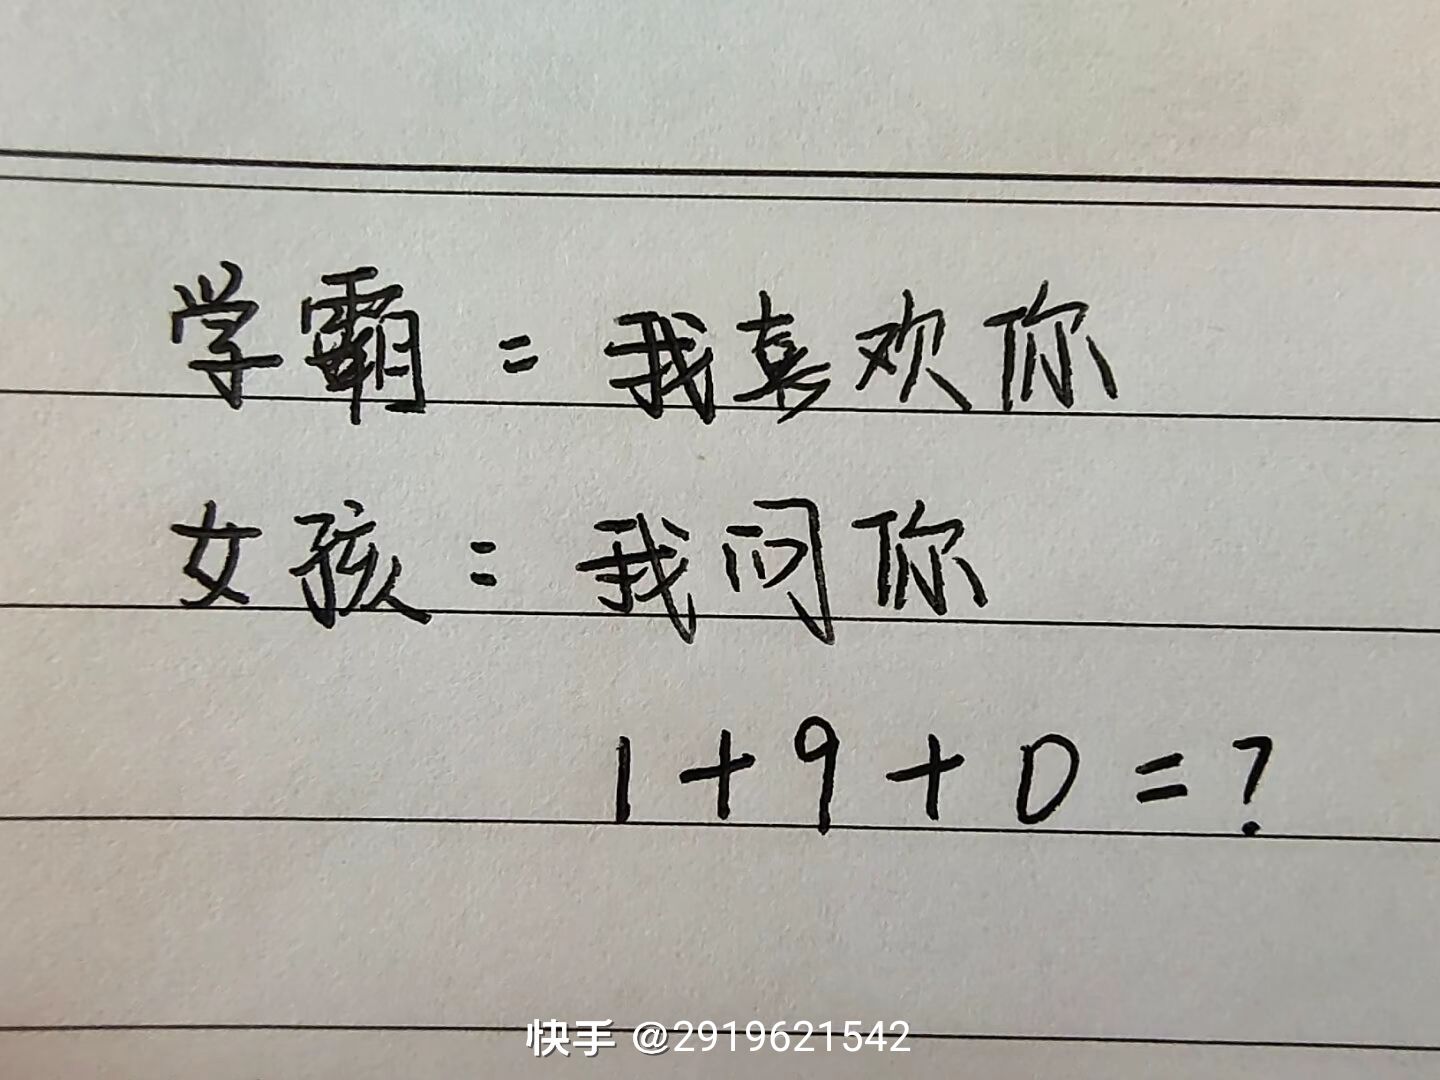 学霸：我喜欢你
女孩：我问你
1+9+0=?
快手 @2919621542